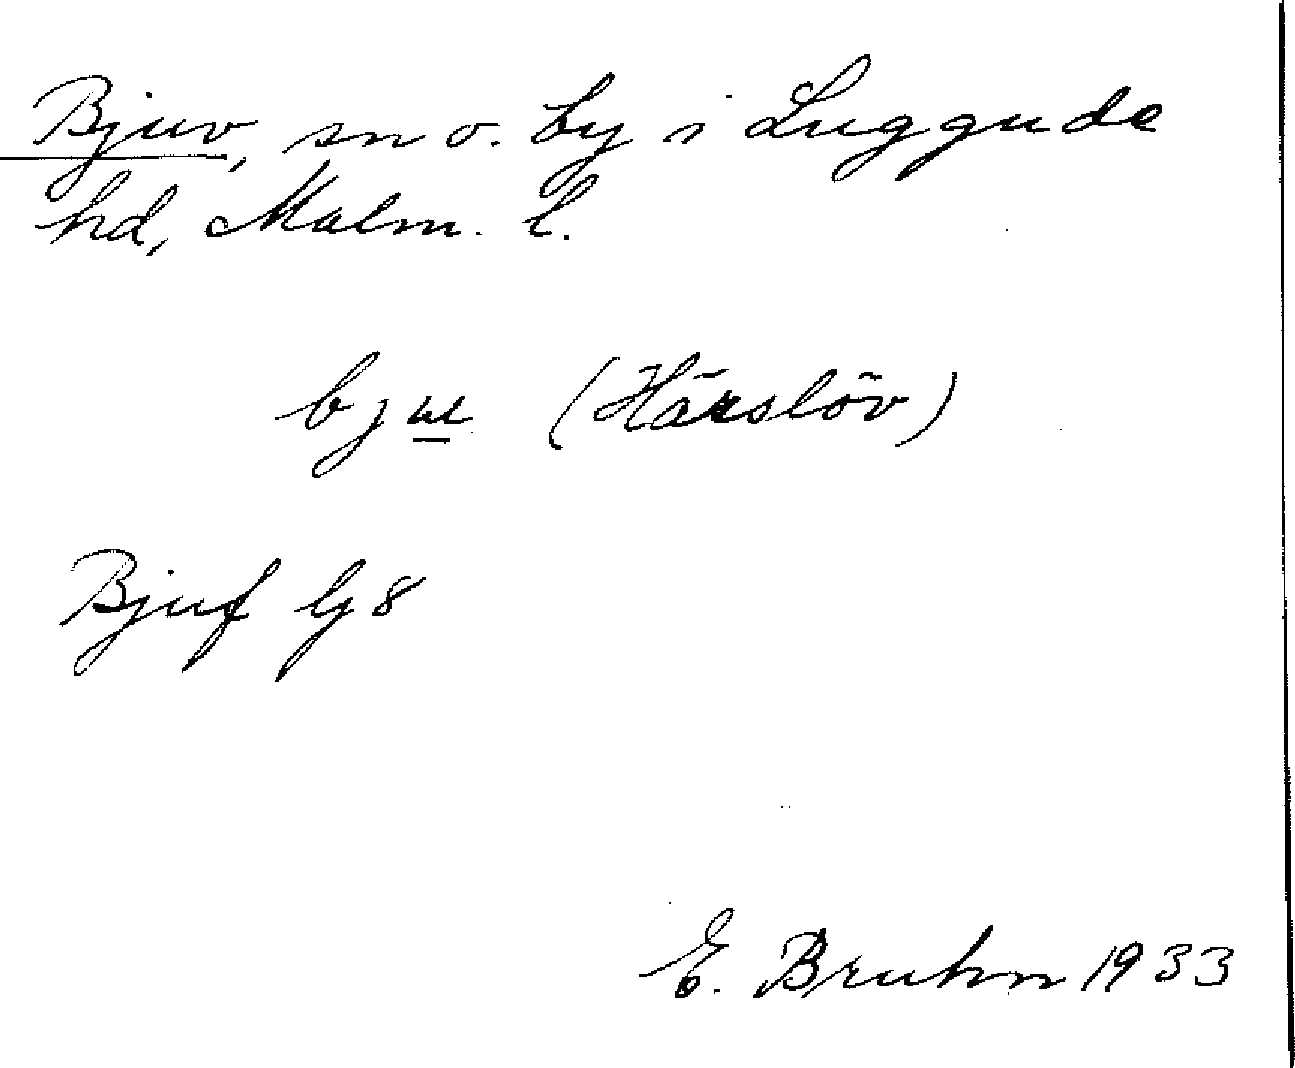 Bjuv, sn o. by i Luggude
hd, Malm. l.
bju (Härslöv)
Bjuf Gj 8
E. Bruhn 1933